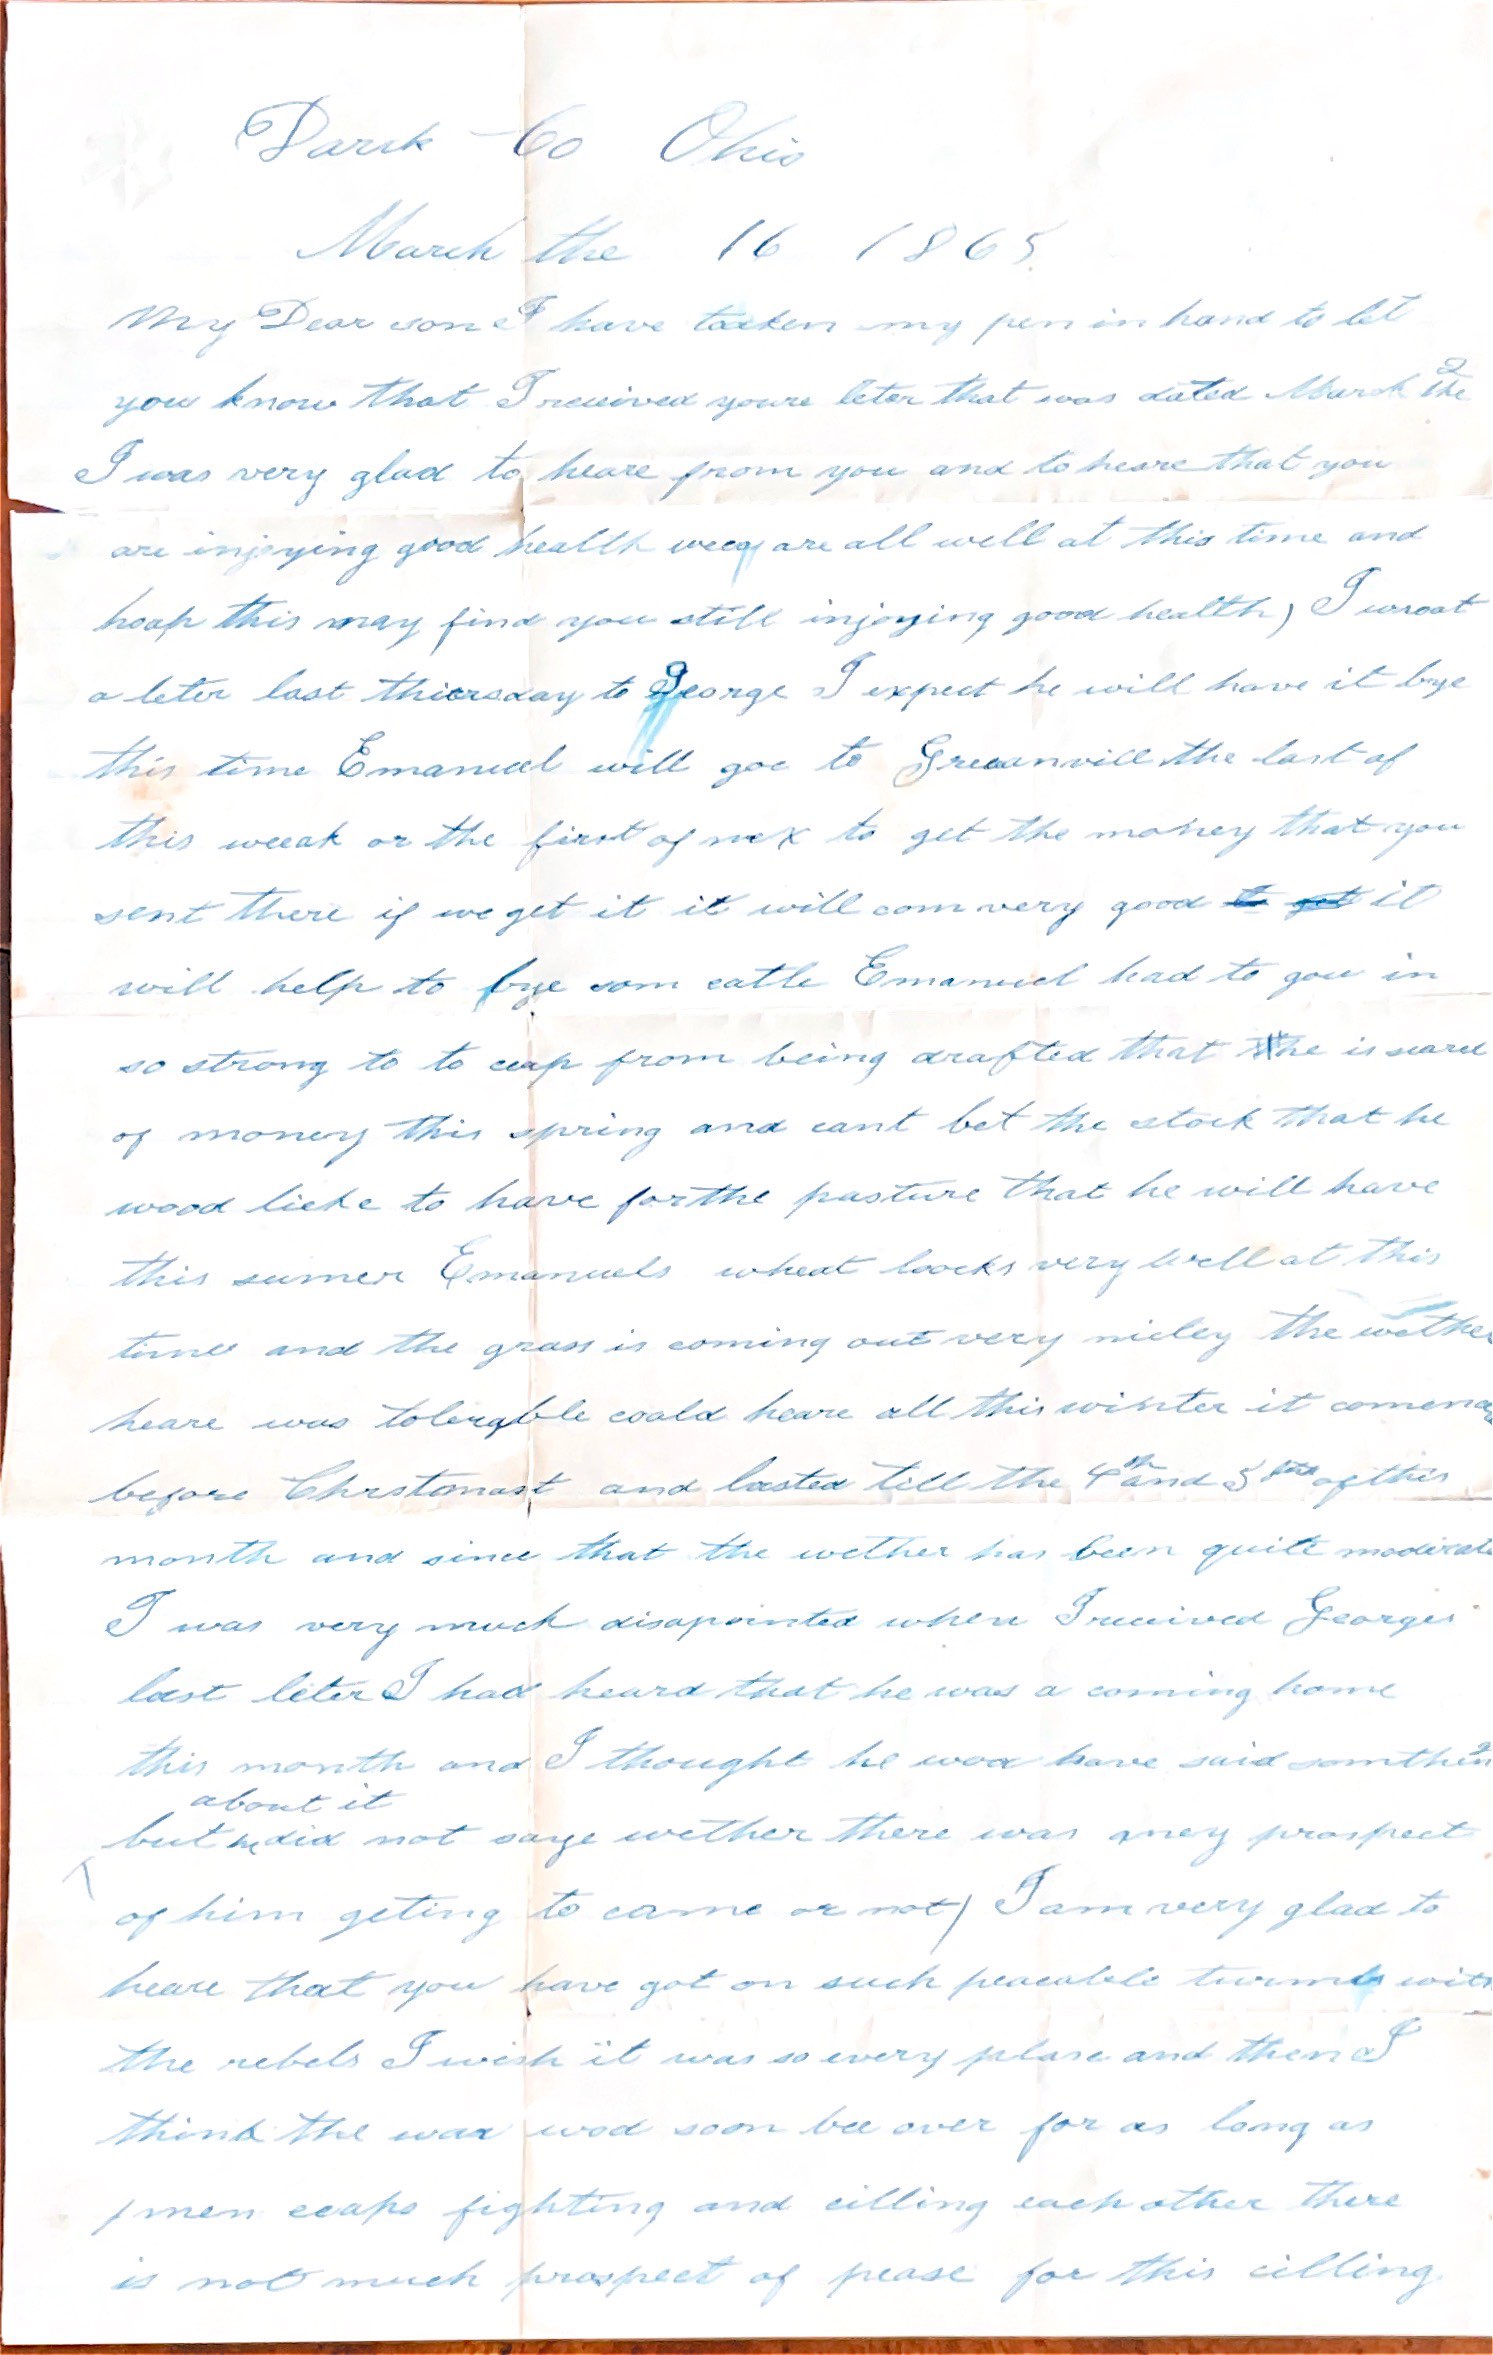 Dark Co Ohio
March the 16 1865
My Dear son I have tacken my pen in hand to let
you know that I received youre leter that was dated March the 2
I was very glad to heare from you and to heare that you
are injoying good health weey are all well at this time and
hoap this may find you still injoying good health) I wroat
a leter last thiersday to George I expect he will have it bye
this time Emanuel will goe to Greeanvill the last of
this weeak or the first of nex to get the money that you
sent there if we get it it will com very good to get it
will help to bye som catle Emanuel had to gou in
so strong to to ceap from being drafted that he is scarce
of money this spring and cant bet the stock that he
wood liche to have for the pasture that he will have
this sumer Emanuels wheat loocks very well at this
time and the grass is coming out very nicley the wether
heare was tolerable coald heare all this winter it comenc
before Chrstomast and lasted till the 4th and 5 of this
month and since that the wether has been quite moderate
I was very much disapointed when I received Georges
last leter I had heard that he was a coming home
this month and I thought he wod have said somthing
about it
but he did not saye wether there was aney prospect
of him geting to come or not) I am very glad to
heare that you have got on such peacable turms with
the rebels I wish it was so every plase and then I
think the war wod soon bee over for as long as
men ceaps fighting and cilling each other there
is not much prospect of pease for this cilling